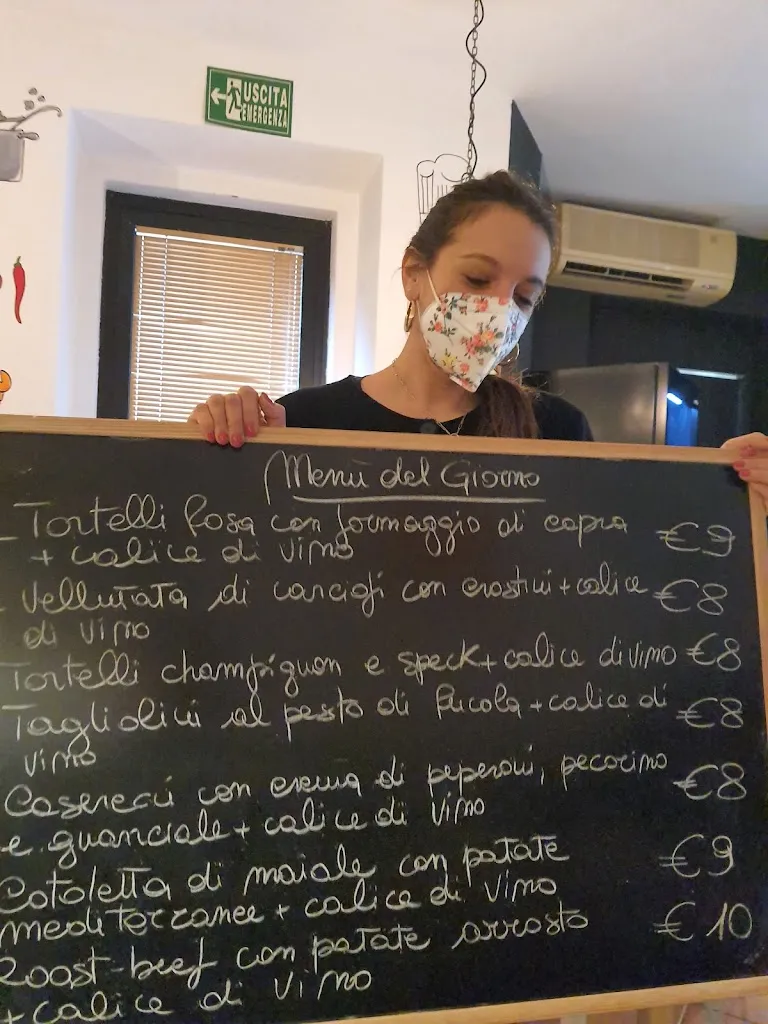 USCITA
EMERGENZA
Menù del Giorno
- Tortelli Rosa con formaggio di capra €9
+ calice di vino
- Vellutata di carciofi con crostini + calice €8
di vino
Tortelli champignon e speck + calice di vino €8
Tagliolini al pesto di Rucola + calice di €8
vino
Caserecci con crema di peperoni, pecorino €8
e guanciale + calice di vino
Cotoletta di maiale con patate €9
mediterranee + calice di vino
Roast-beef con patate arrosto €10
+ calice di vino